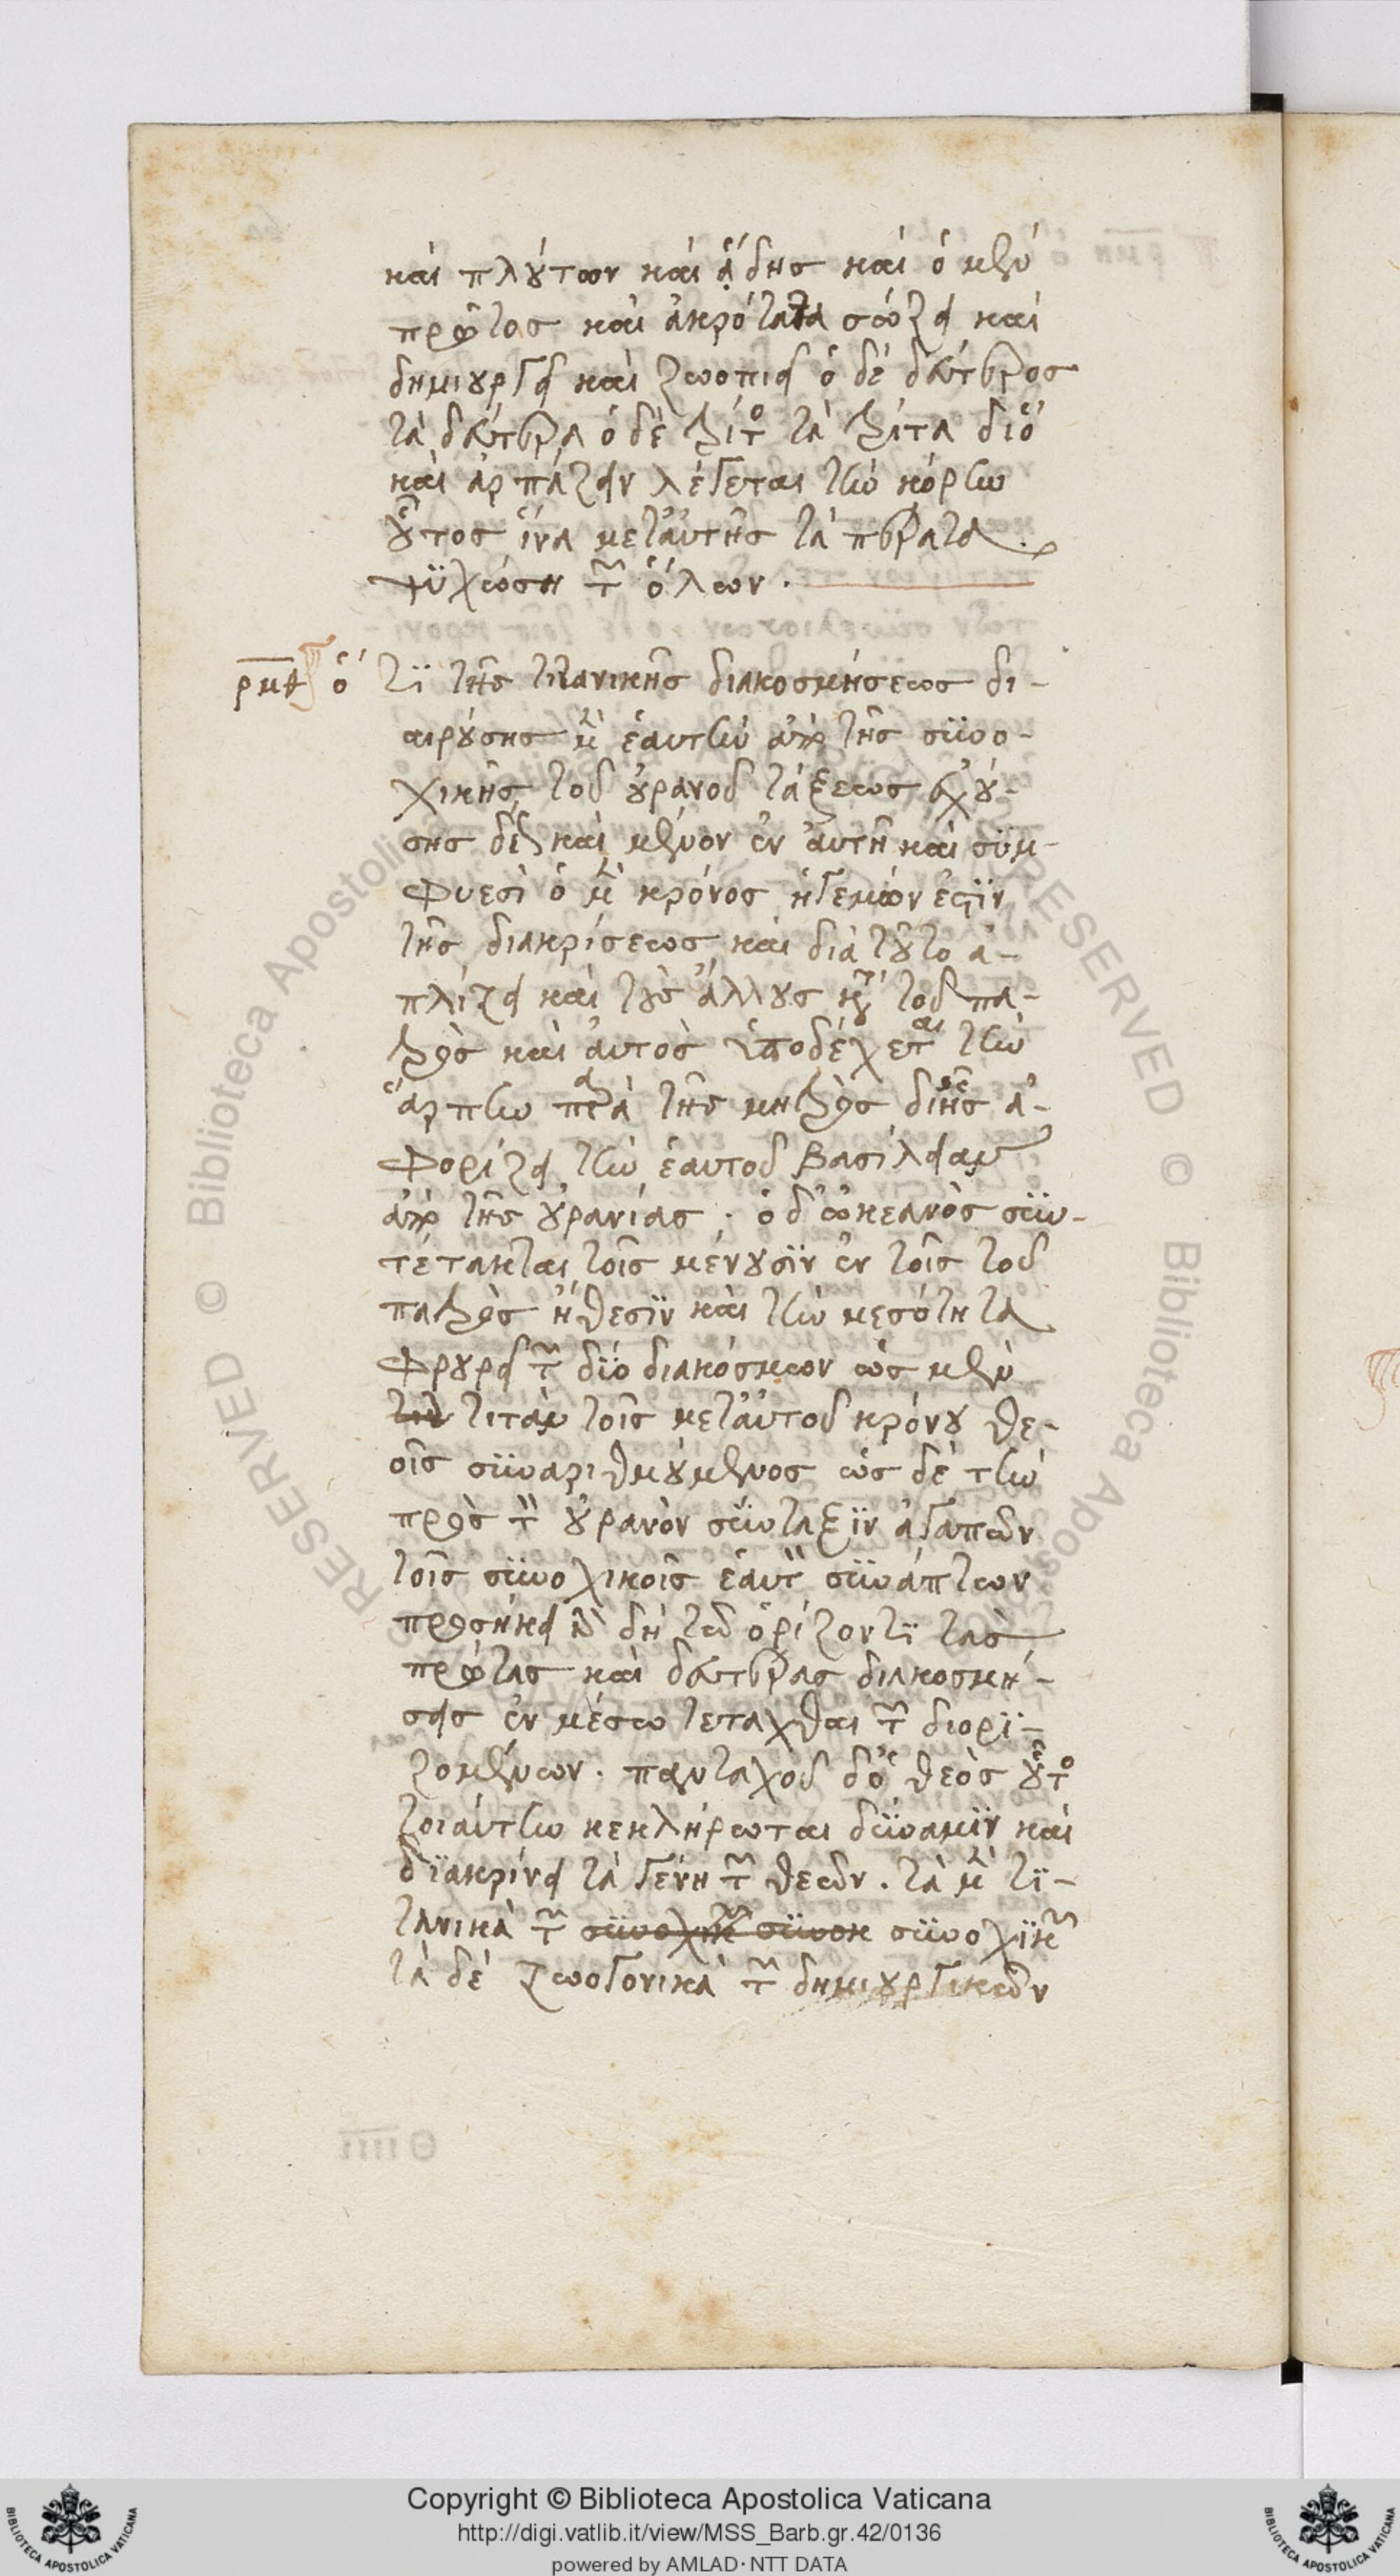 καὶ πλούτων καὶ ᾅδης καὶ ὁ μὲν
πρῶτος καὶ ἀκρότατα σώζει καὶ
δημιουργεῖ καὶ ζωοποιεῖ ὁ δὲ δεύτερος
τὰ δεύτερα ὁ δὲ τρίτος τὰ τρίτα διὸ
καὶ ἁρπάζειν λέγεται τὴν κόρην
οὗτος ἵνα μετ' αὐτῆς τὰ πέρατα
ψυχώση τῶν ὅλων.
ρμθ ὅτι τῆς τιτανικῆς διακοσμήσεως δι-
αιρούσης μὲν ἑαυτὴν ἀπὸ τῆς συνο-
χικῆς τοῦ οὐρανοῦ τάξεως ἐχού-
σης δέ τι καὶ μένον ἐν αὐτῆ καὶ συμ-
φυεσὶ ὁ μὲν κρόνος ἡγεμών ἐστιν
τῆς διακρίσεως καὶ διὰ τοῦτο ὁ-
πλίζει καὶ τοὺς ἄλλους κατὰ τοῦ πα-
τρὸς καὶ αὐτὸς ὑποδέχεται τὴν
ἅρπην παρὰ τῆς μητρὸς δι' ἧς ἀ-
φορίζει τὴν ἑαυτοῦ βασιλείαν
ἀπὸ τῆς οὐρανίας. ὁ δ' ὠκεανὸς συν-
τέτακται τοῖς μένουσιν ἐν τοῖς τοῦ
πατρὸς ἤθεσιν καὶ τὴν μεσότητα
φρουρεῖ τῶν δύο διακόσμων ὡς μὲν
τιτὰν τοῖς μετ' αὐτοῦ κρόνου θε-
οῖς συναριθμούμενος ὡς δὲ τὴν
πρὸς τὸν οὐρανὸν σύνταξιν ἀγαπῶν
τοῖς συνοχικοῖς ἑαυτὸν συνάπτων
προσήκει γὰρ δὴ τῶ ὁρίζοντι τὰς
πρώτας καὶ δευτέρας διακοσμή-
σεις ἐν μέσω τετάχθαι τῶν διορι-
ζομένων. πανταχοῦ δ' ὁ θεὸς οὗτος
τοιαύτην κεκλήρωται δύναμιν καὶ
διακρίνει τὰ γένη τῶν θεῶν. τὰ μὲν τι-
τανικὰ τῶν συνοχικῶν
τὰ δὲ ζωογονικὰ τῶν δημιουργικῶν
Copyright © Biblioteca Apostolica Vaticana
http://digi.vatlib.it/view/MSS_Barb.gr.42/0136
powered by AMLAD · NTT DATA